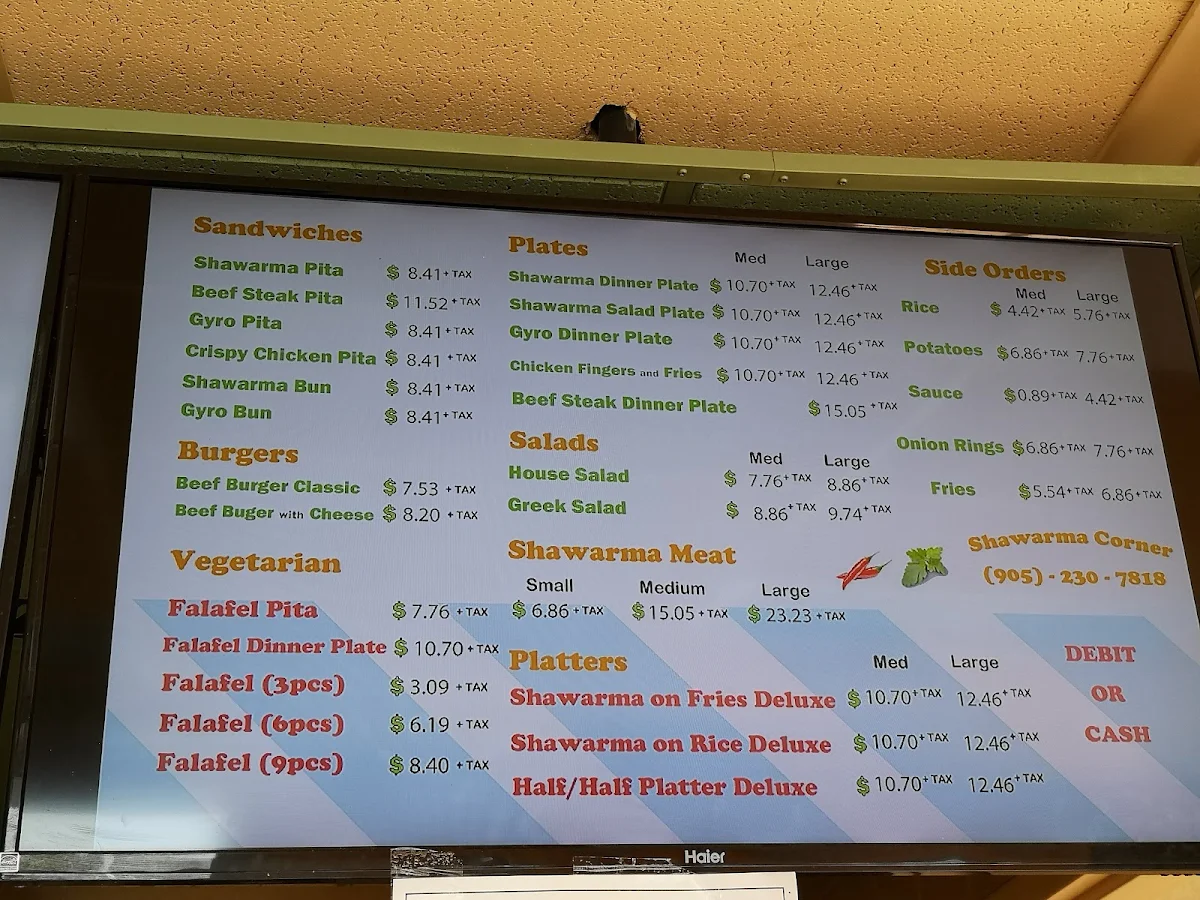 Sandwiches
Shawarma Pita $ 8.41+TAX
Beef Steak Pita $ 11.52+TAX
Gyro Pita $ 8.41+TAX
Crispy Chicken Pita $ 8.41 +TAX
Shawarma Bun $ 8.41+TAX
Gyro Bun $ 8.41+TAX
Burgers
Beef Burger Classic $ 7.53 +TAX
Beef Buger with Cheese $ 8.20 +TAX
Vegetarian
Falafel Pita $ 7.76 +TAX
Falafel Dinner Plate $ 10.70+TAX
Falafel (3pcs) $ 3.09 +TAX
Falafel (6pcs) $ 6.19 +TAX
Falafel (9pcs) $ 8.40 +TAX
Plates
Med Large
Shawarma Dinner Plate $ 10.70+TAX 12.46+TAX
Shawarma Salad Plate $ 10.70+TAX 12.46+TAX
Gyro Dinner Plate $ 10.70+TAX 12.46+TAX
Chicken Fingers and Fries $ 10.70+TAX 12.46+TAX
Beef Steak Dinner Plate $ 15.05 +TAX
Salads
Med Large
House Salad $ 7.76+TAX 8.86+TAX
Greek Salad $ 8.86+TAX 9.74+TAX
Shawarma Meat
Small Medium Large
$ 6.86 +TAX $ 15.05 +TAX $ 23.23 +TAX
Platters
Med Large
Shawarma on Fries Deluxe $ 10.70+TAX 12.46+TAX
Shawarma on Rice Deluxe $ 10.70+TAX 12.46+TAX
Half/Half Platter Deluxe $ 10.70+TAX 12.46+TAX
Side Orders
Med Large
Rice $ 4.42+TAX 5.76+TAX
Potatoes $6.86+TAX 7.76+TAX
Sauce $0.89+TAX 4.42+TAX
Onion Rings $6.86+TAX 7.76+TAX
Fries $5.54+TAX 6.86+TAX
Shawarma Corner
(905) - 230 - 7818
DEBIT
OR
CASH
Haier